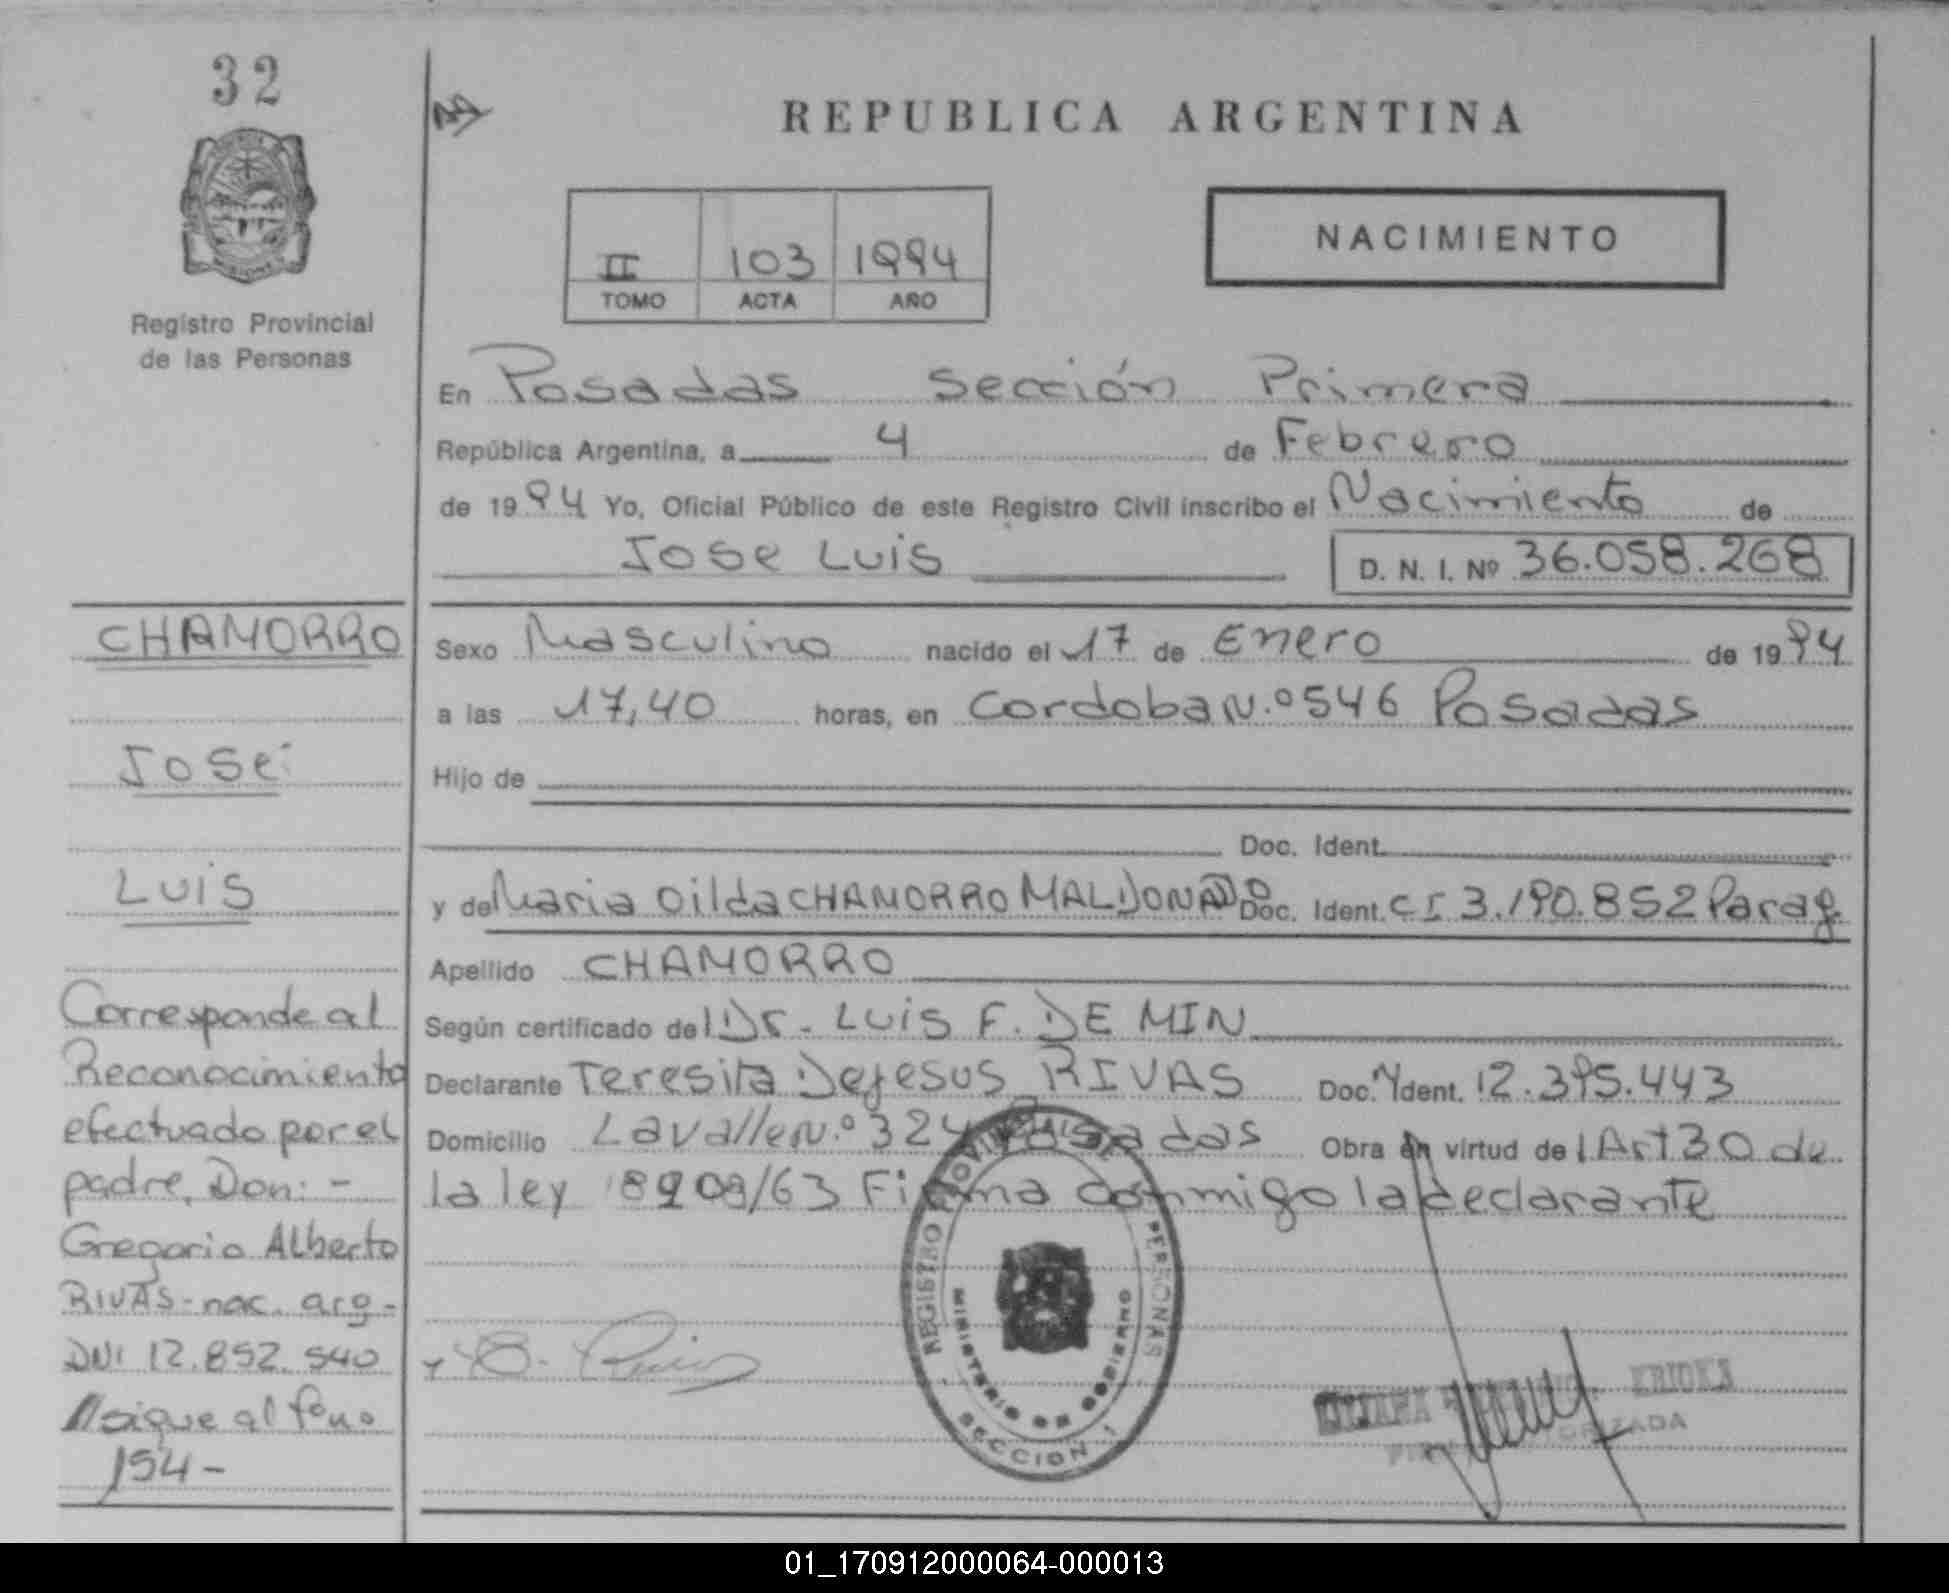 32
Registro Provincial
de las Personas
REPUBLICA ARGENTINA
II 103 1994
TOMO ACTA AÑO
NACIMIENTO
En Posadas Sección Primera
República Argentina, a 4 de Febrero
de 1994 Yo, Oficial Público de este Registro Civil inscribo el Nacimiento de
Jose Luis D. N. I. Nº 36.058.268
Sexo Masculino nacido el 17 de Enero de 1994
a las 17,40 horas, en Cordoba N.º 546 Posadas
Hijo de
Doc. Ident.
y de Maria Oilda CHAMORRO MALDONADO Doc. Ident. CI 3.190.852 Parag.
Apellido CHAMORRO
Según certificado del Dr. Luis F. DE MIN
Declarante Teresita Dejesus RIVAS Doc. Ident. 12.395.443
Domicilio Lavalle N.º 324 Posadas Obra en virtud del Art 30 de
la ley 18908/63 Firma conmigo la declarante
CHAMORRO
José
Luis
Corresponde al
Reconocimiento
efectuado por el
padre, Don: -
Gregorio Alberto
RIVAS - nac. arg -
DNI 12.852.540
sigue al fono
154 -
REGISTRO PROVINCIAL DE PERSONAS
MINISTERIO DE GOBIERNO
SECCION 1
01_170912000064-000013